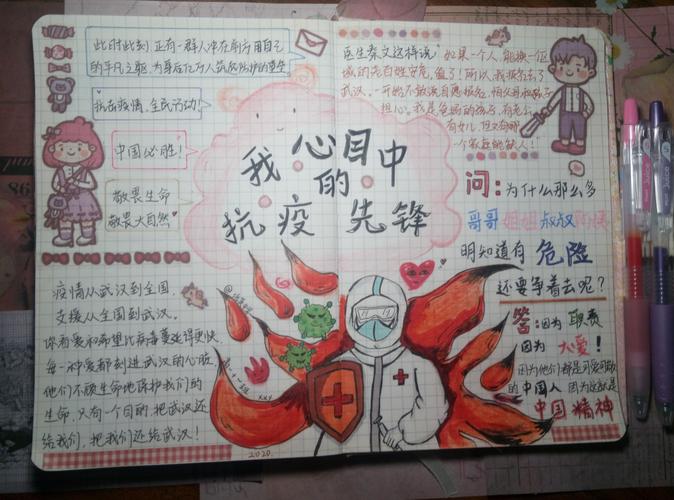 此时此刻,正有一群人冲在前方用自己
的平凡之躯,为身后亿万人筑
抗击疫情,全民行动!
中国必胜!
敬畏生命
敬畏大自然
疫情从武汉到全国,
支援从全国到武汉。
你看爱和希望比病毒蔓延得更快,
每一种爱都刻进武汉的心脏,
他们不顾生命地保护我们的
生命,只有一个目的,把武汉还
给我们,把我们还给武汉!
我心目中
的
抗疫先锋
医生秦文这样说:如果一个人,能换一座
城的老百姓安危,值了!所以我报名去了
武汉,一开始不敢说自愿报名,怕父母和孩子
担心。我是爸妈的孩子,有老公,
有女儿,但又有哪
一个家庭能缺人!
问:为什么那么多
哥哥 姐姐 叔叔 阿姨
明知道有 危险
还要争着去呢?
答:因为 职责
因为 大爱!
因为他们都是可爱可敬
的中国人 因为这就是
中国精神
2020.
Juice